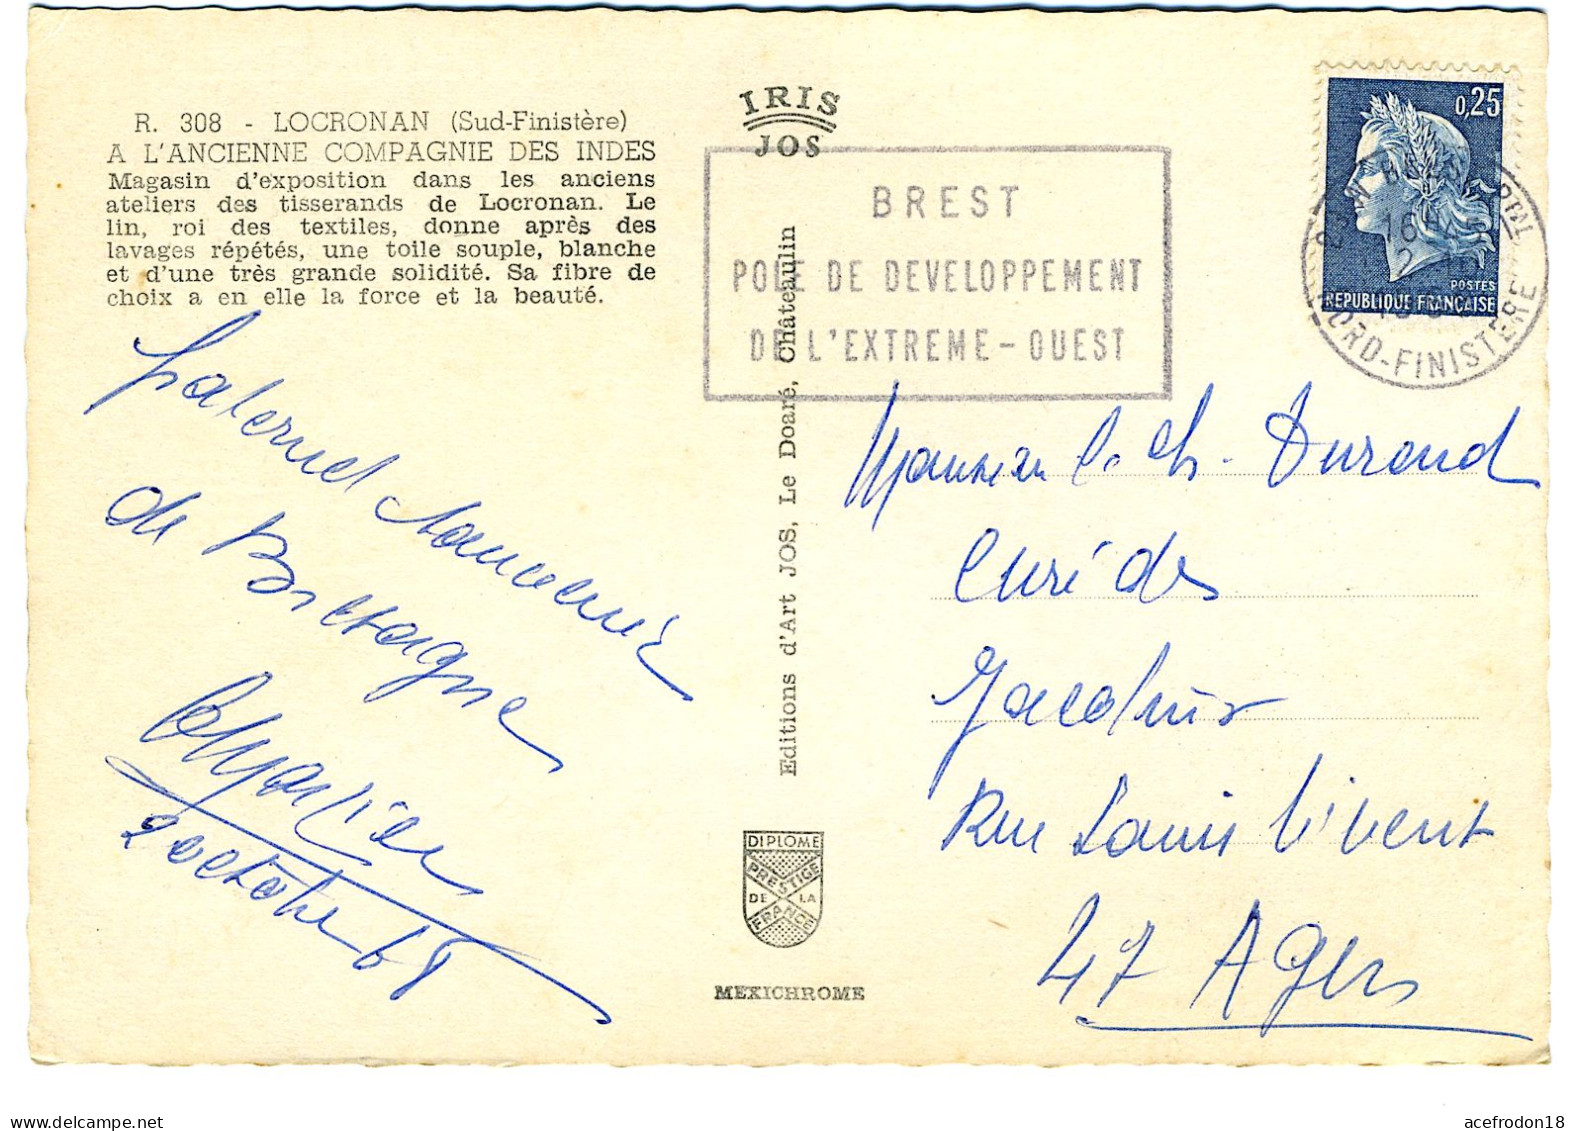 R. 308 - LOCRONAN (Sud-Finistère)
A L'ANCIENNE COMPAGNIE DES INDES
Magasin d'exposition dans les anciens
ateliers des tisserands de Locronan. Le
lin, roi des textiles, donne après des
lavages répétés, une toile souple, blanche
et d'une très grande solidité. Sa fibre de
choix a en elle la force et la beauté.
IRIS
JOS
BREST
POLE DE DEVELOPPEMENT
DE L'EXTREME-OUEST
0,25
POSTES
REPUBLIQUE FRANÇAISE
16H45
NORD-FINISTERE
Editions d'Art JOS, Le Doaré, Châteaulin
fraternel souvenir
de Bretagne
2 octobre 68
Monsieur le Ch. Durand
Curé des
Jacobins
Rue Louis Vivent
47 Agen
DIPLOME
PRESTIGE
DE LA
FRANCE
MEXICHROME
acefrodon18